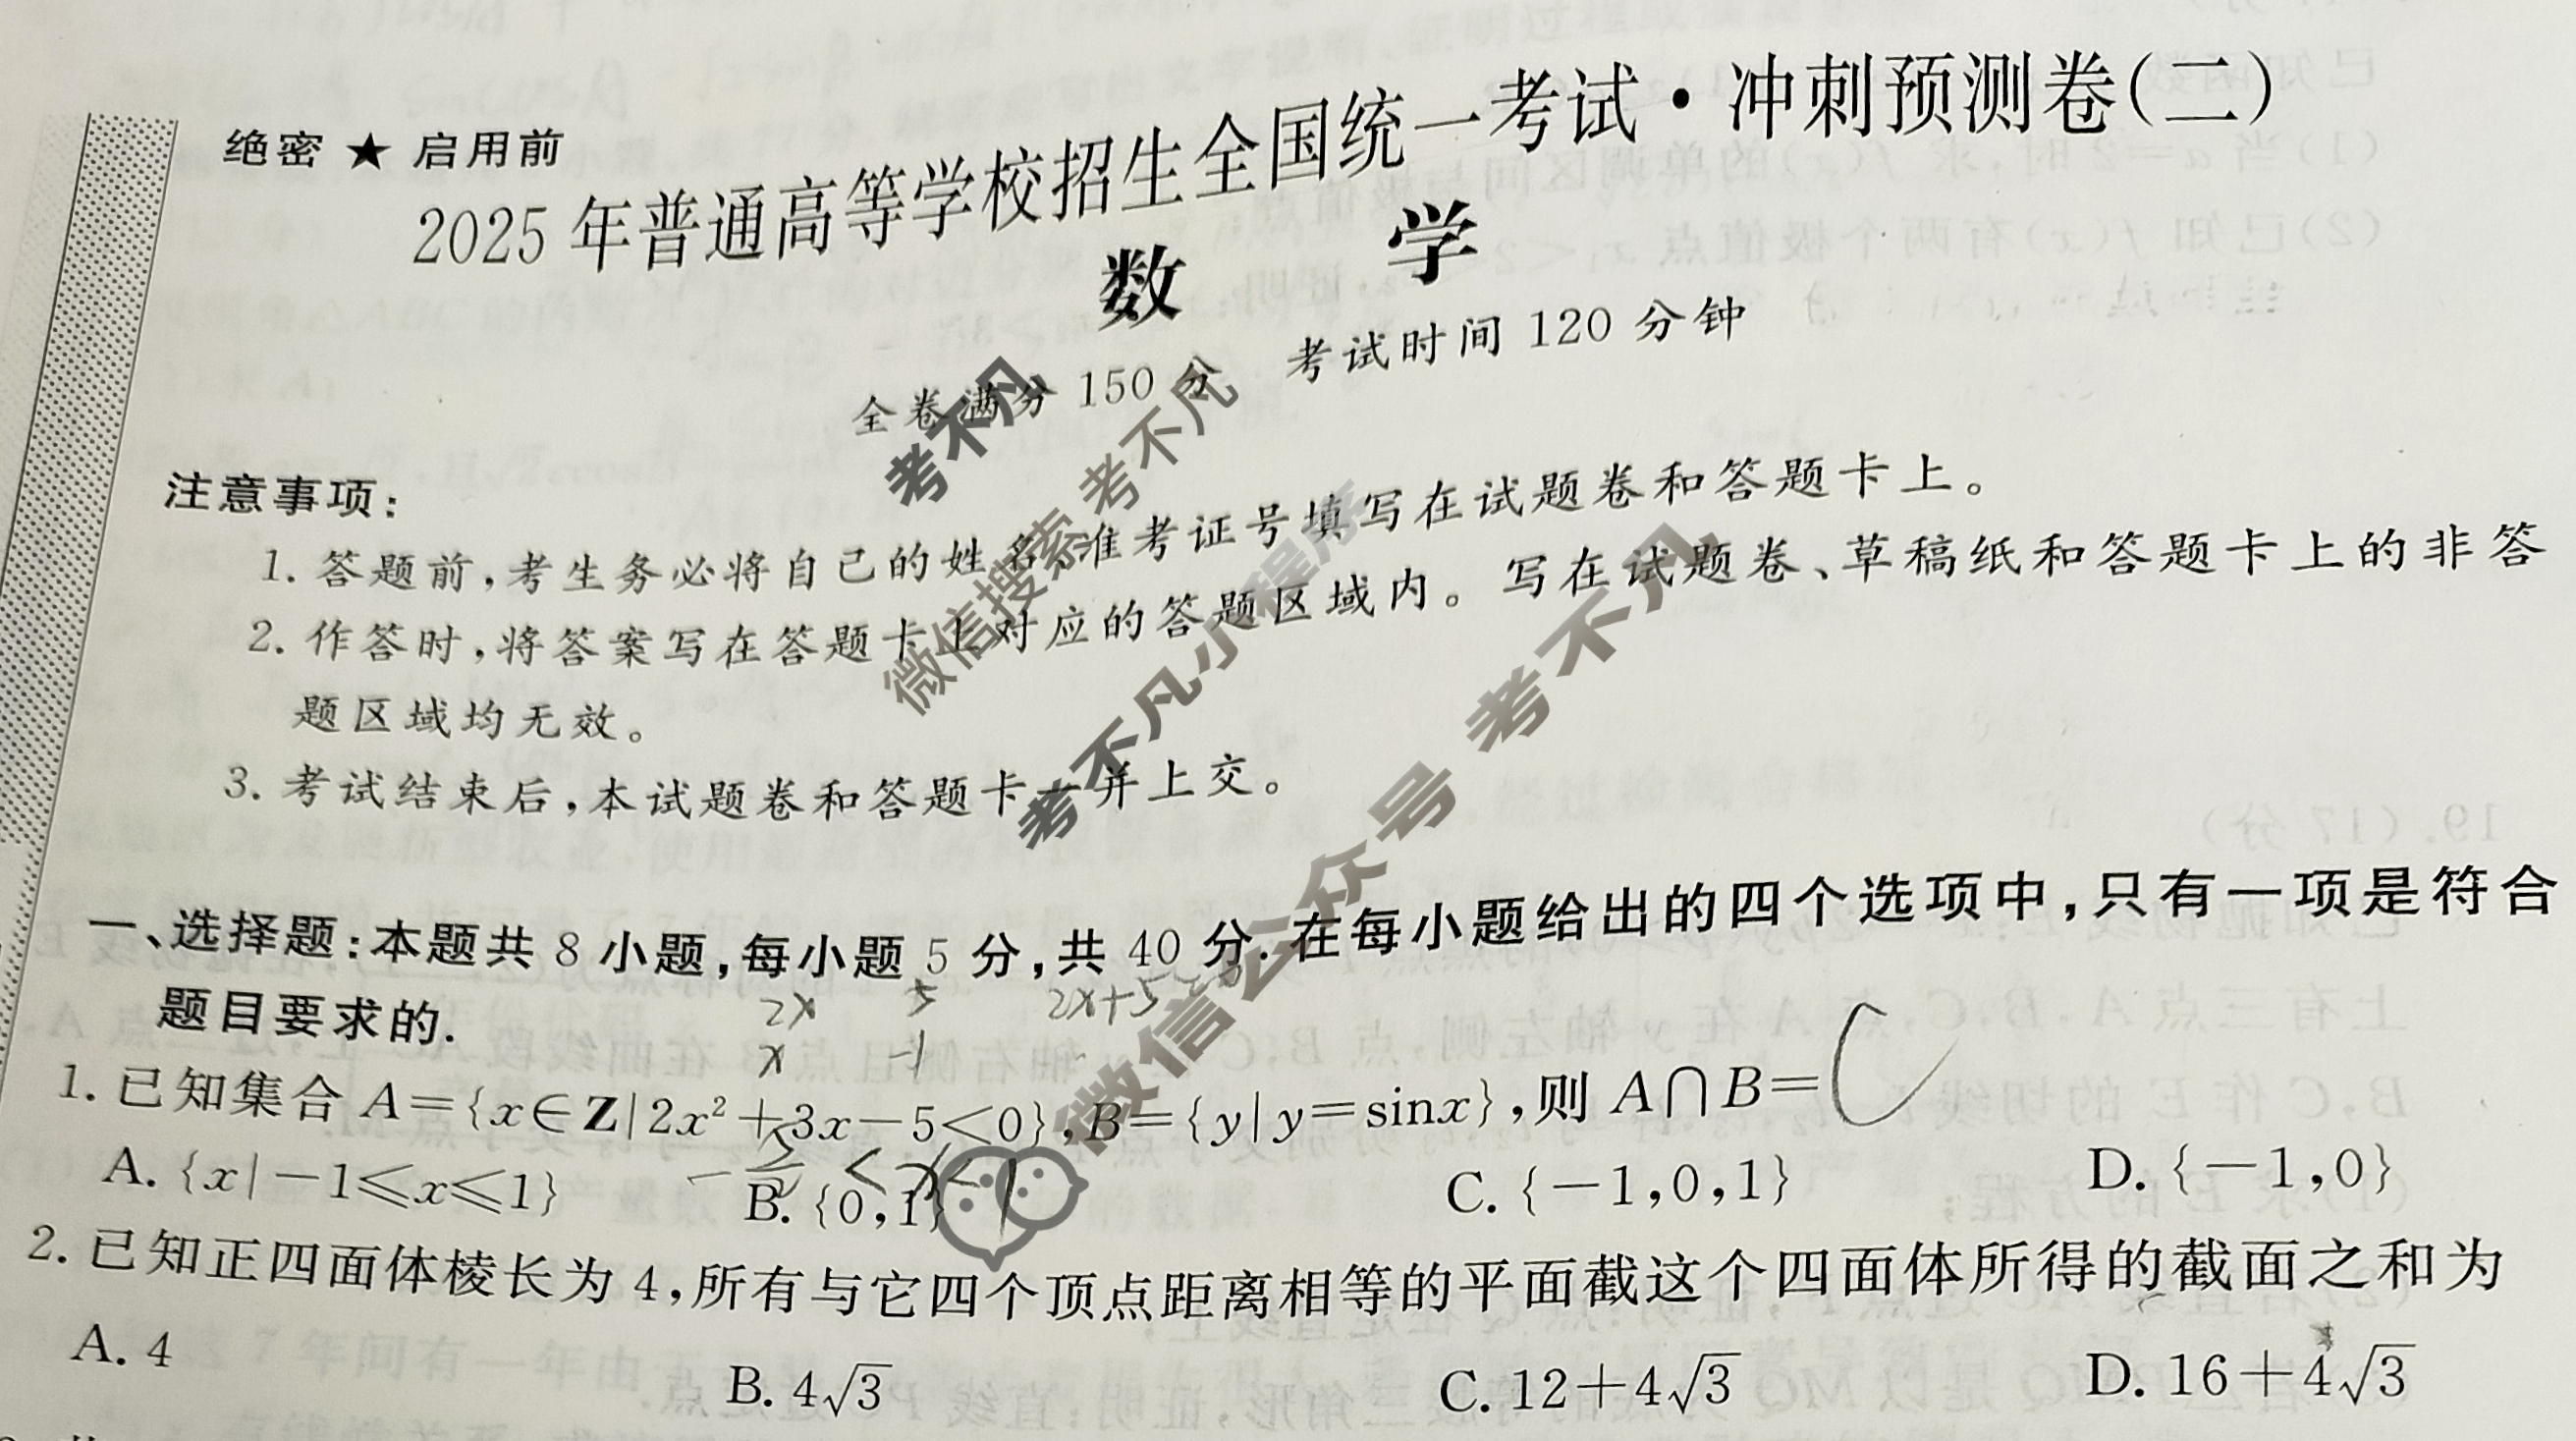 绝密 ★ 启用前
2025 年普通高等学校招生全国统一考试·冲刺预测卷(二)
数 学
全卷满分 150 分 考试时间 120 分钟
注意事项:
1. 答题前,考生务必将自己的姓名、准考证号填写在试题卷和答题卡上。
2. 作答时,将答案写在答题卡上对应的答题区域内。写在试题卷、草稿纸和答题卡上的非答
题区域均无效。
3. 考试结束后,本试题卷和答题卡一并上交。
一、选择题:本题共 8 小题,每小题 5 分,共 40 分. 在每小题给出的四个选项中,只有一项是符合
题目要求的.
2x 5 2x+5
x -1
1. 已知集合 A={x∈Z|2x²+3x-5<0},B={y|y=sinx},则 A∩B= C
-5/2 < x < 1
A. {x|-1≤x≤1} B. {0,1} C. {-1,0,1} D. {-1,0}
2. 已知正四面体棱长为 4,所有与它四个顶点距离相等的平面截这个四面体所得的截面之和为
A. 4 B. 4√3 C. 12+4√3 D. 16+4√3
考不凡
微信搜索 考不凡
考不凡小程序
微信公众号 考不凡